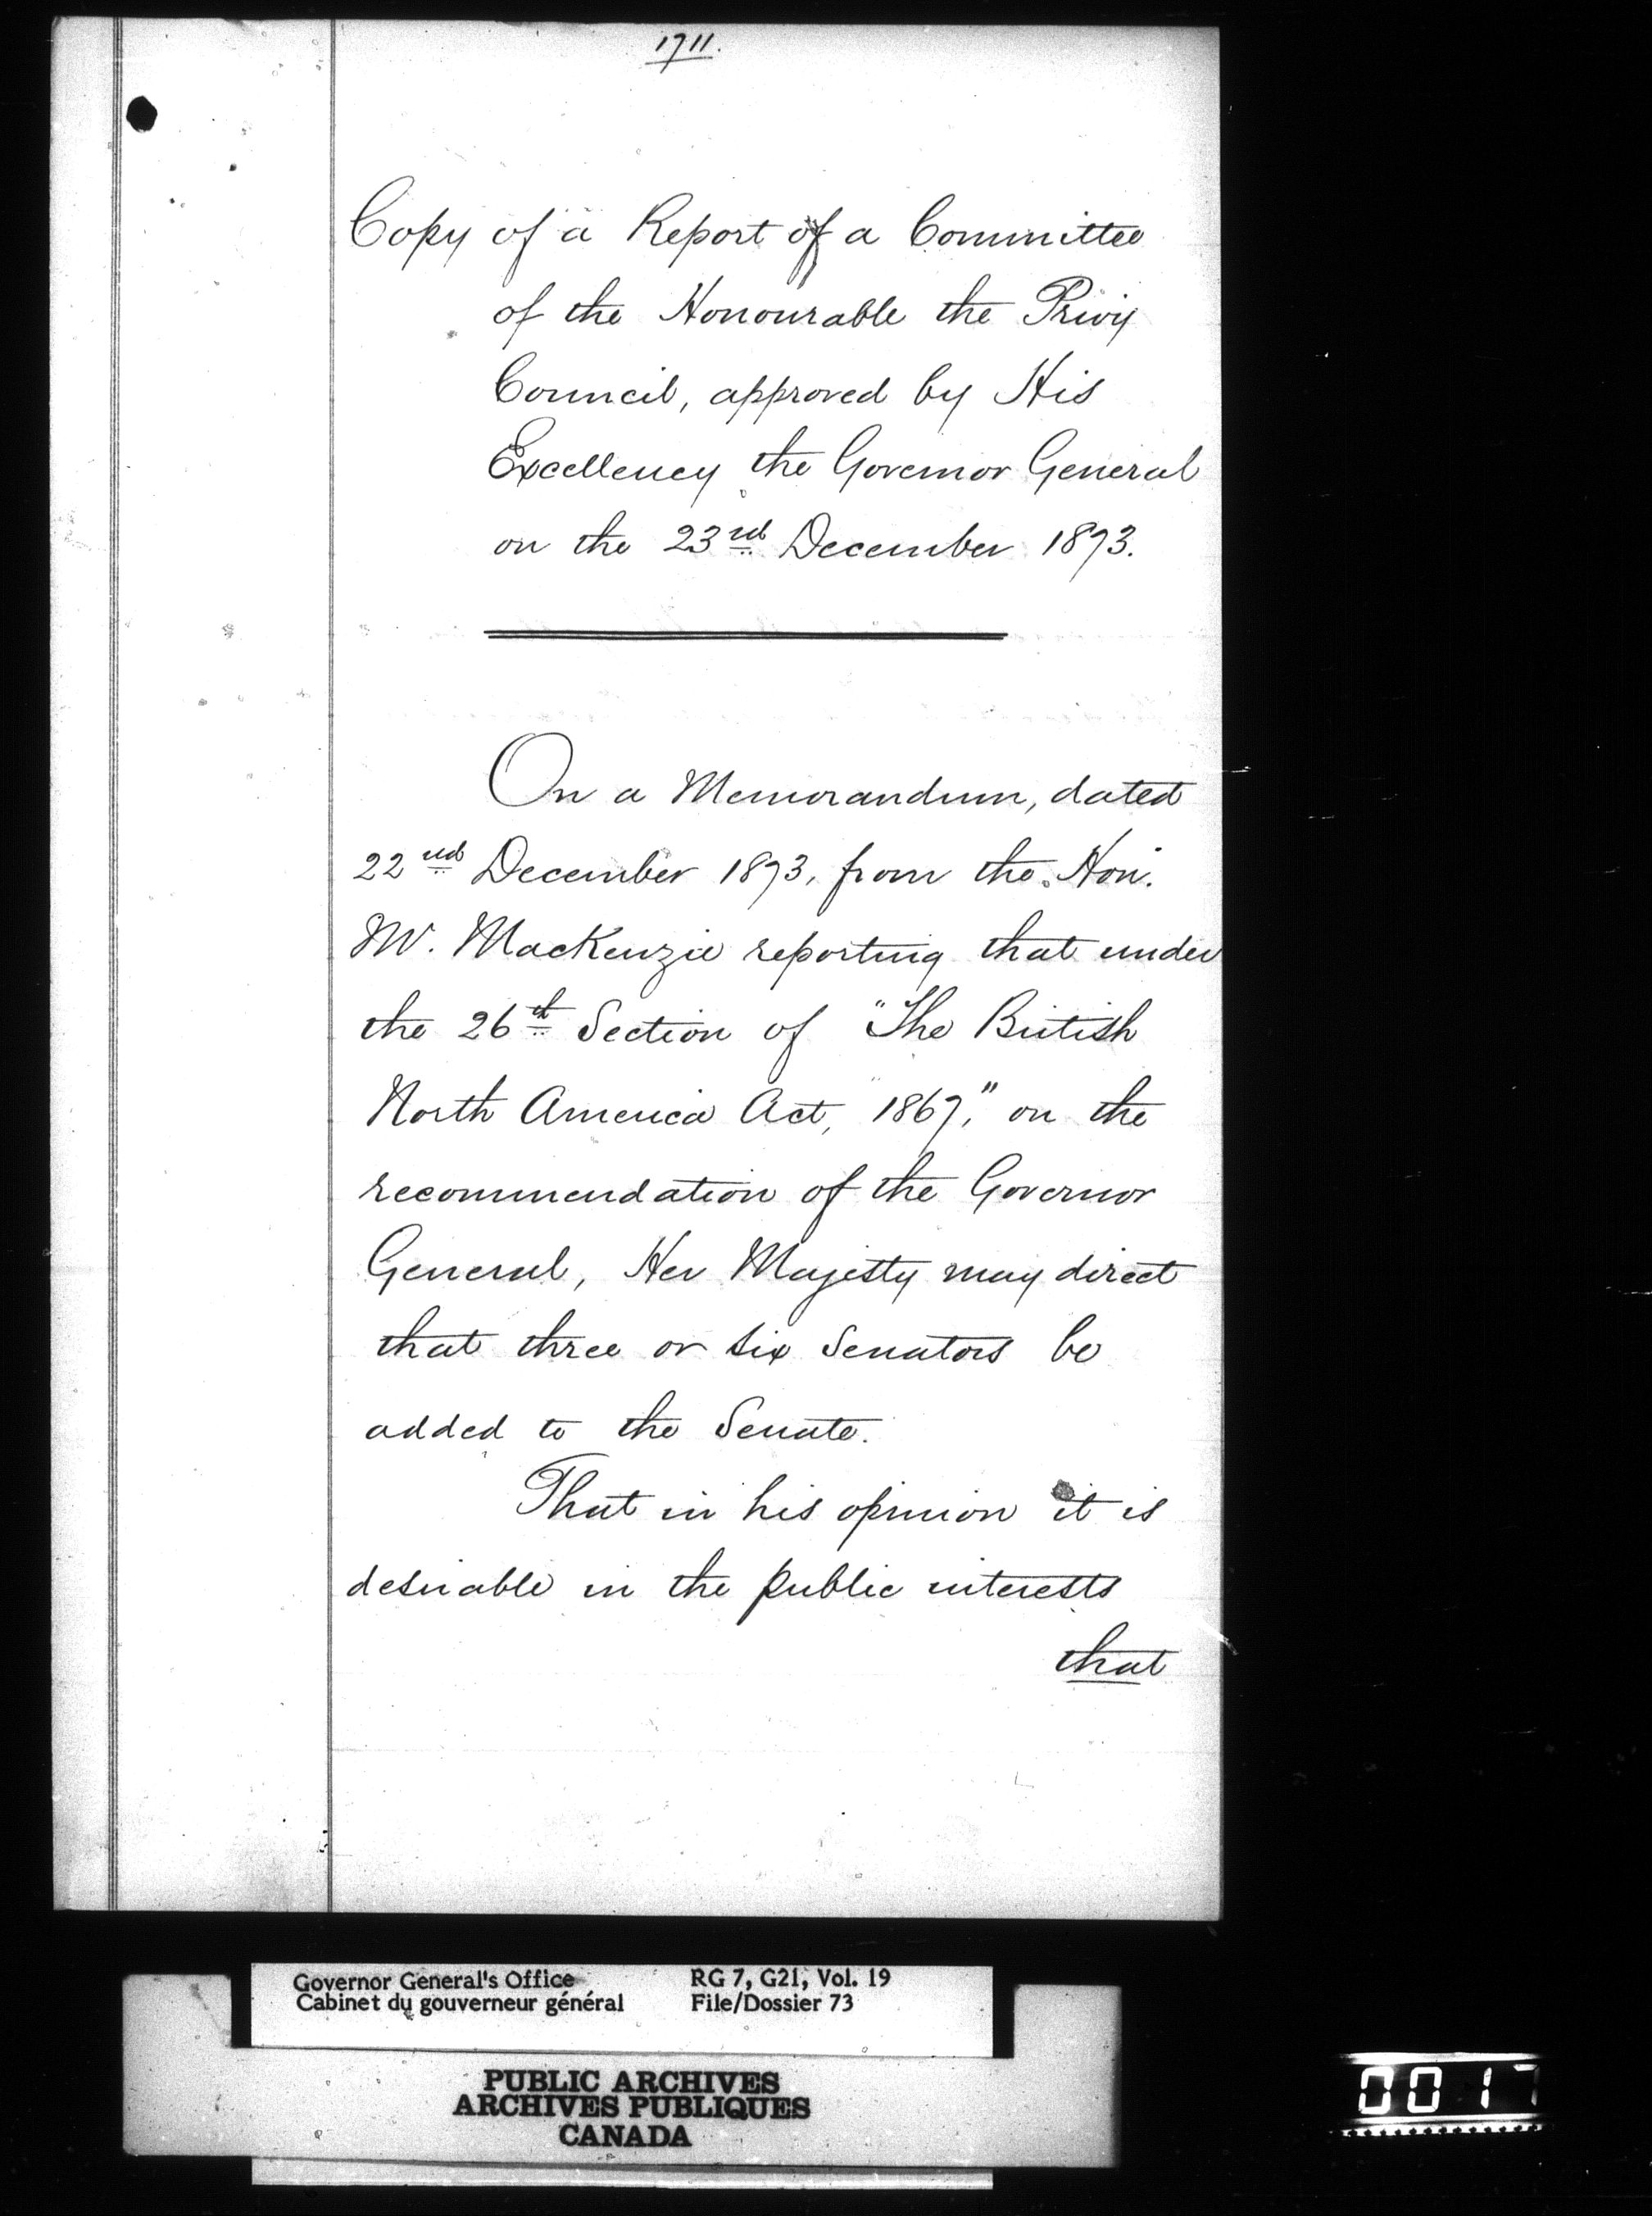 1711.
Copy of a Report of a Committee
of the Honourable the Privy
Council, approved by His
Excellency the Governor General
on the 23rd December 1873.
On a Memorandum, dated
22nd December 1873, from the Hon.
Mr. MacKenzie reporting that under
the 26th Section of "The British
North America Act, 1867," on the
recommendation of the Governor
General, Her Majesty may direct
that three or six Senators be
added to the Senate.
That in his opinion it is
desirable in the public interests
that
Governor General's Office RG 7, G21, Vol. 19
Cabinet du gouverneur général File/Dossier 73
PUBLIC ARCHIVES
ARCHIVES PUBLIQUES
CANADA
0017